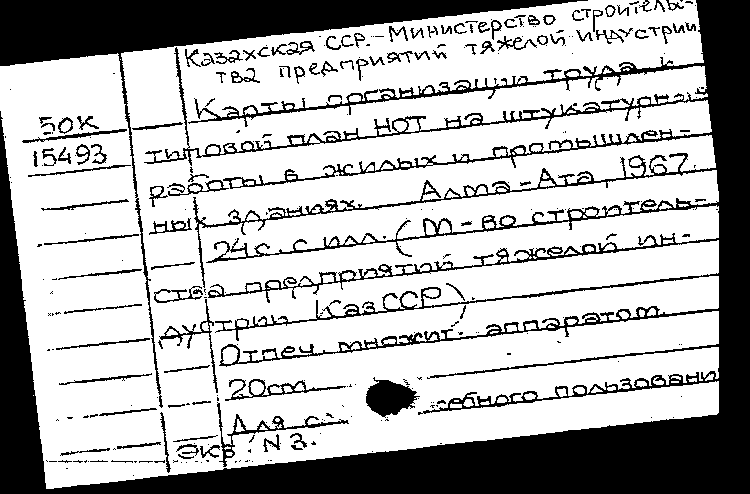 Казахская ССР.-Министерство строитель-
тва предприятий тяжелой индустрии.
Карты организации труда и
50К
15493
типовой план НОТ на штукатурные
работы в жилых и промышлен-
ных зданиях. Алма-Ата, 1967.
24с. с илл. (М-во строитель-
ства предприятий тяжелой ин-
дустрии КазССР).
Отпеч. множит. аппаратом.
20см.
Для
пользовани
Экз. N 3.